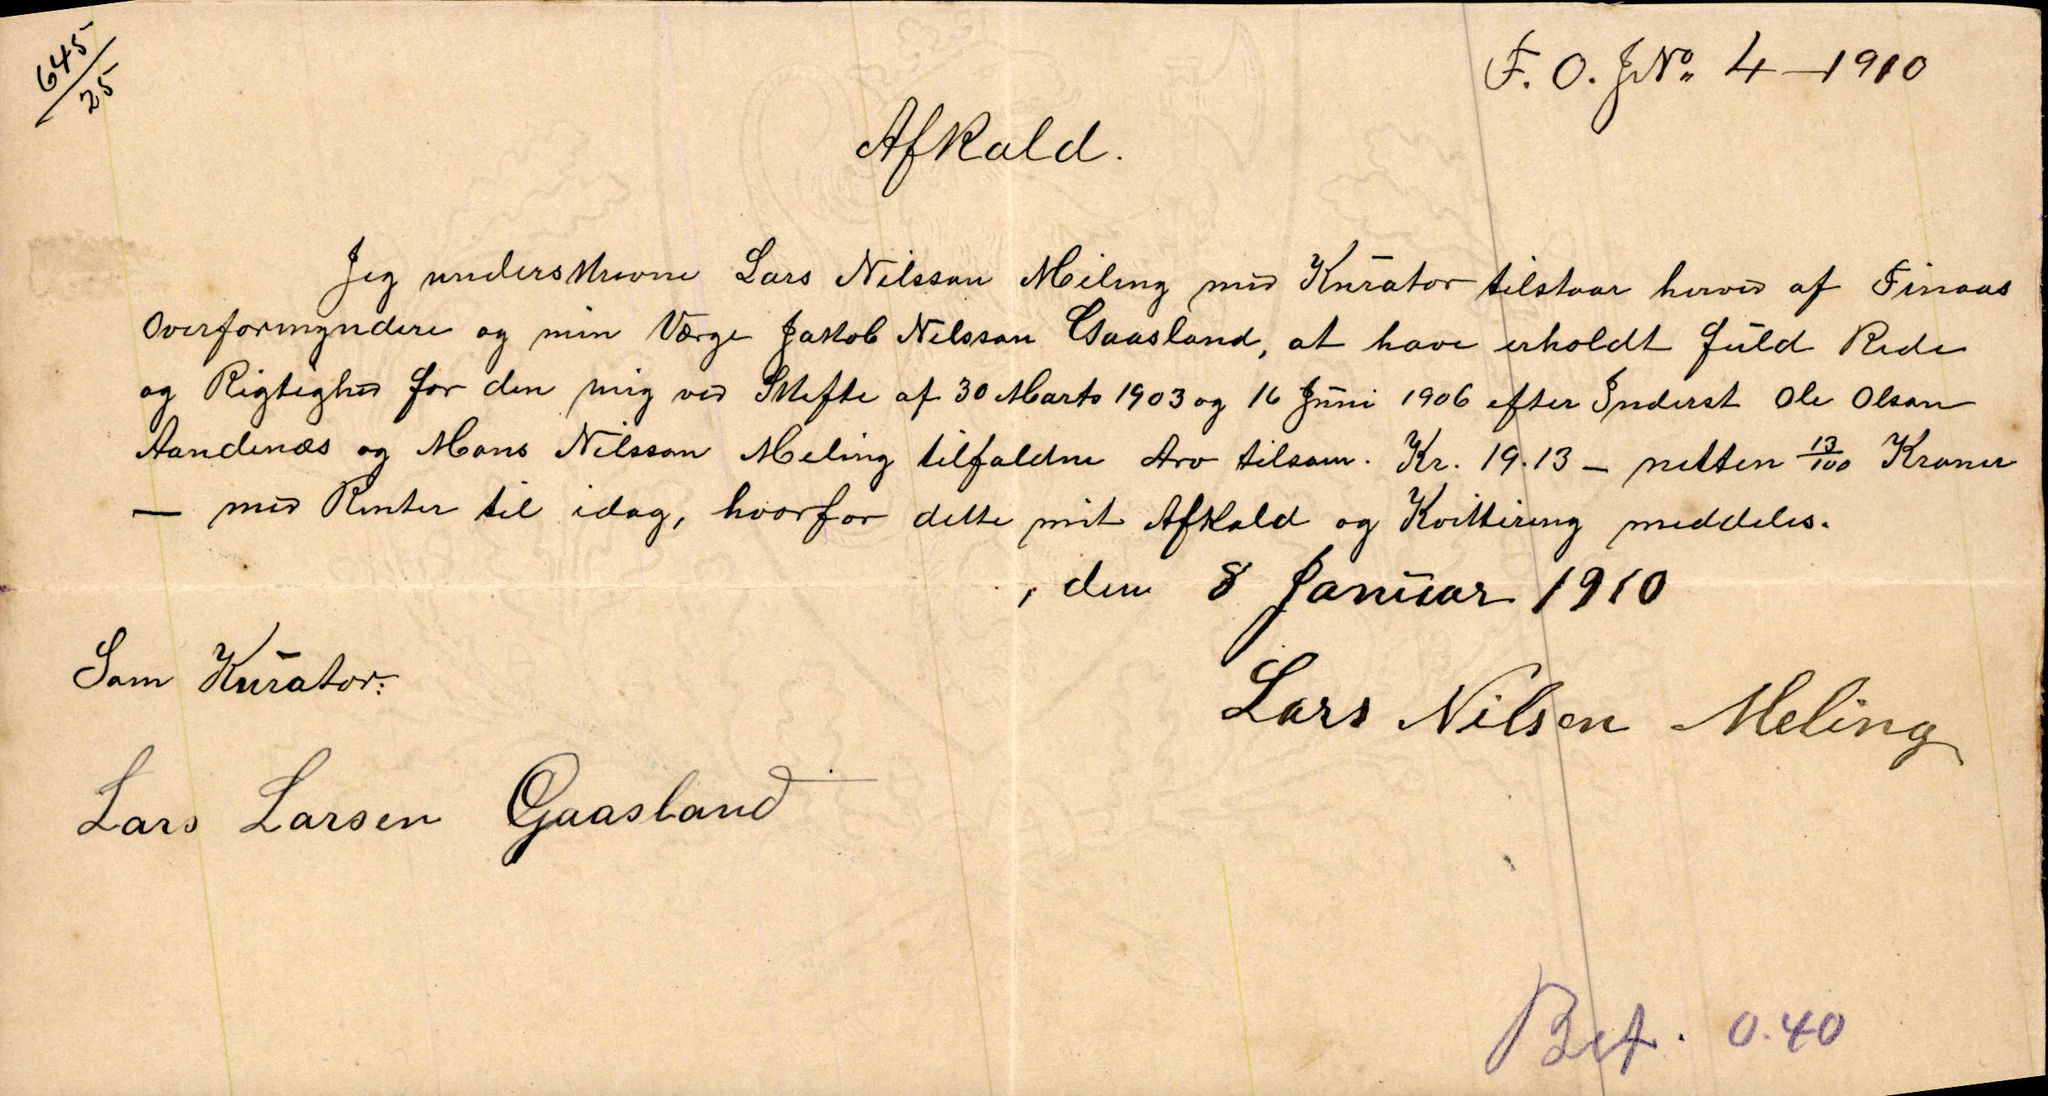 645/25
F. O. JNo. 4 – 1910
Afkald.
Jeg underskrevne Lars Nilsson Meling med Kurator tilstaar herved af Finaas
Overformyndere og min Værge Jakob Nilsson Gaasland, at have erholdt fuld Rede
og Rigtighed for den mig ved Skifte af 30 Marts 1903 og 16 Juni 1906 efter Inderst Ole Olson
Aandenæs og Mons Nilsson Meling tilfaldne Arv tilsam. Kr. 19.13 – nitten 13/100 Kroner
— med Renter til idag, hvorfor dette mit Afkald og Kvittering meddeles.
, den 8 Januar 1910
Som Kurator:
Lars Nilsen Meling
Lars Larsen Gaasland
Bet. 0.40